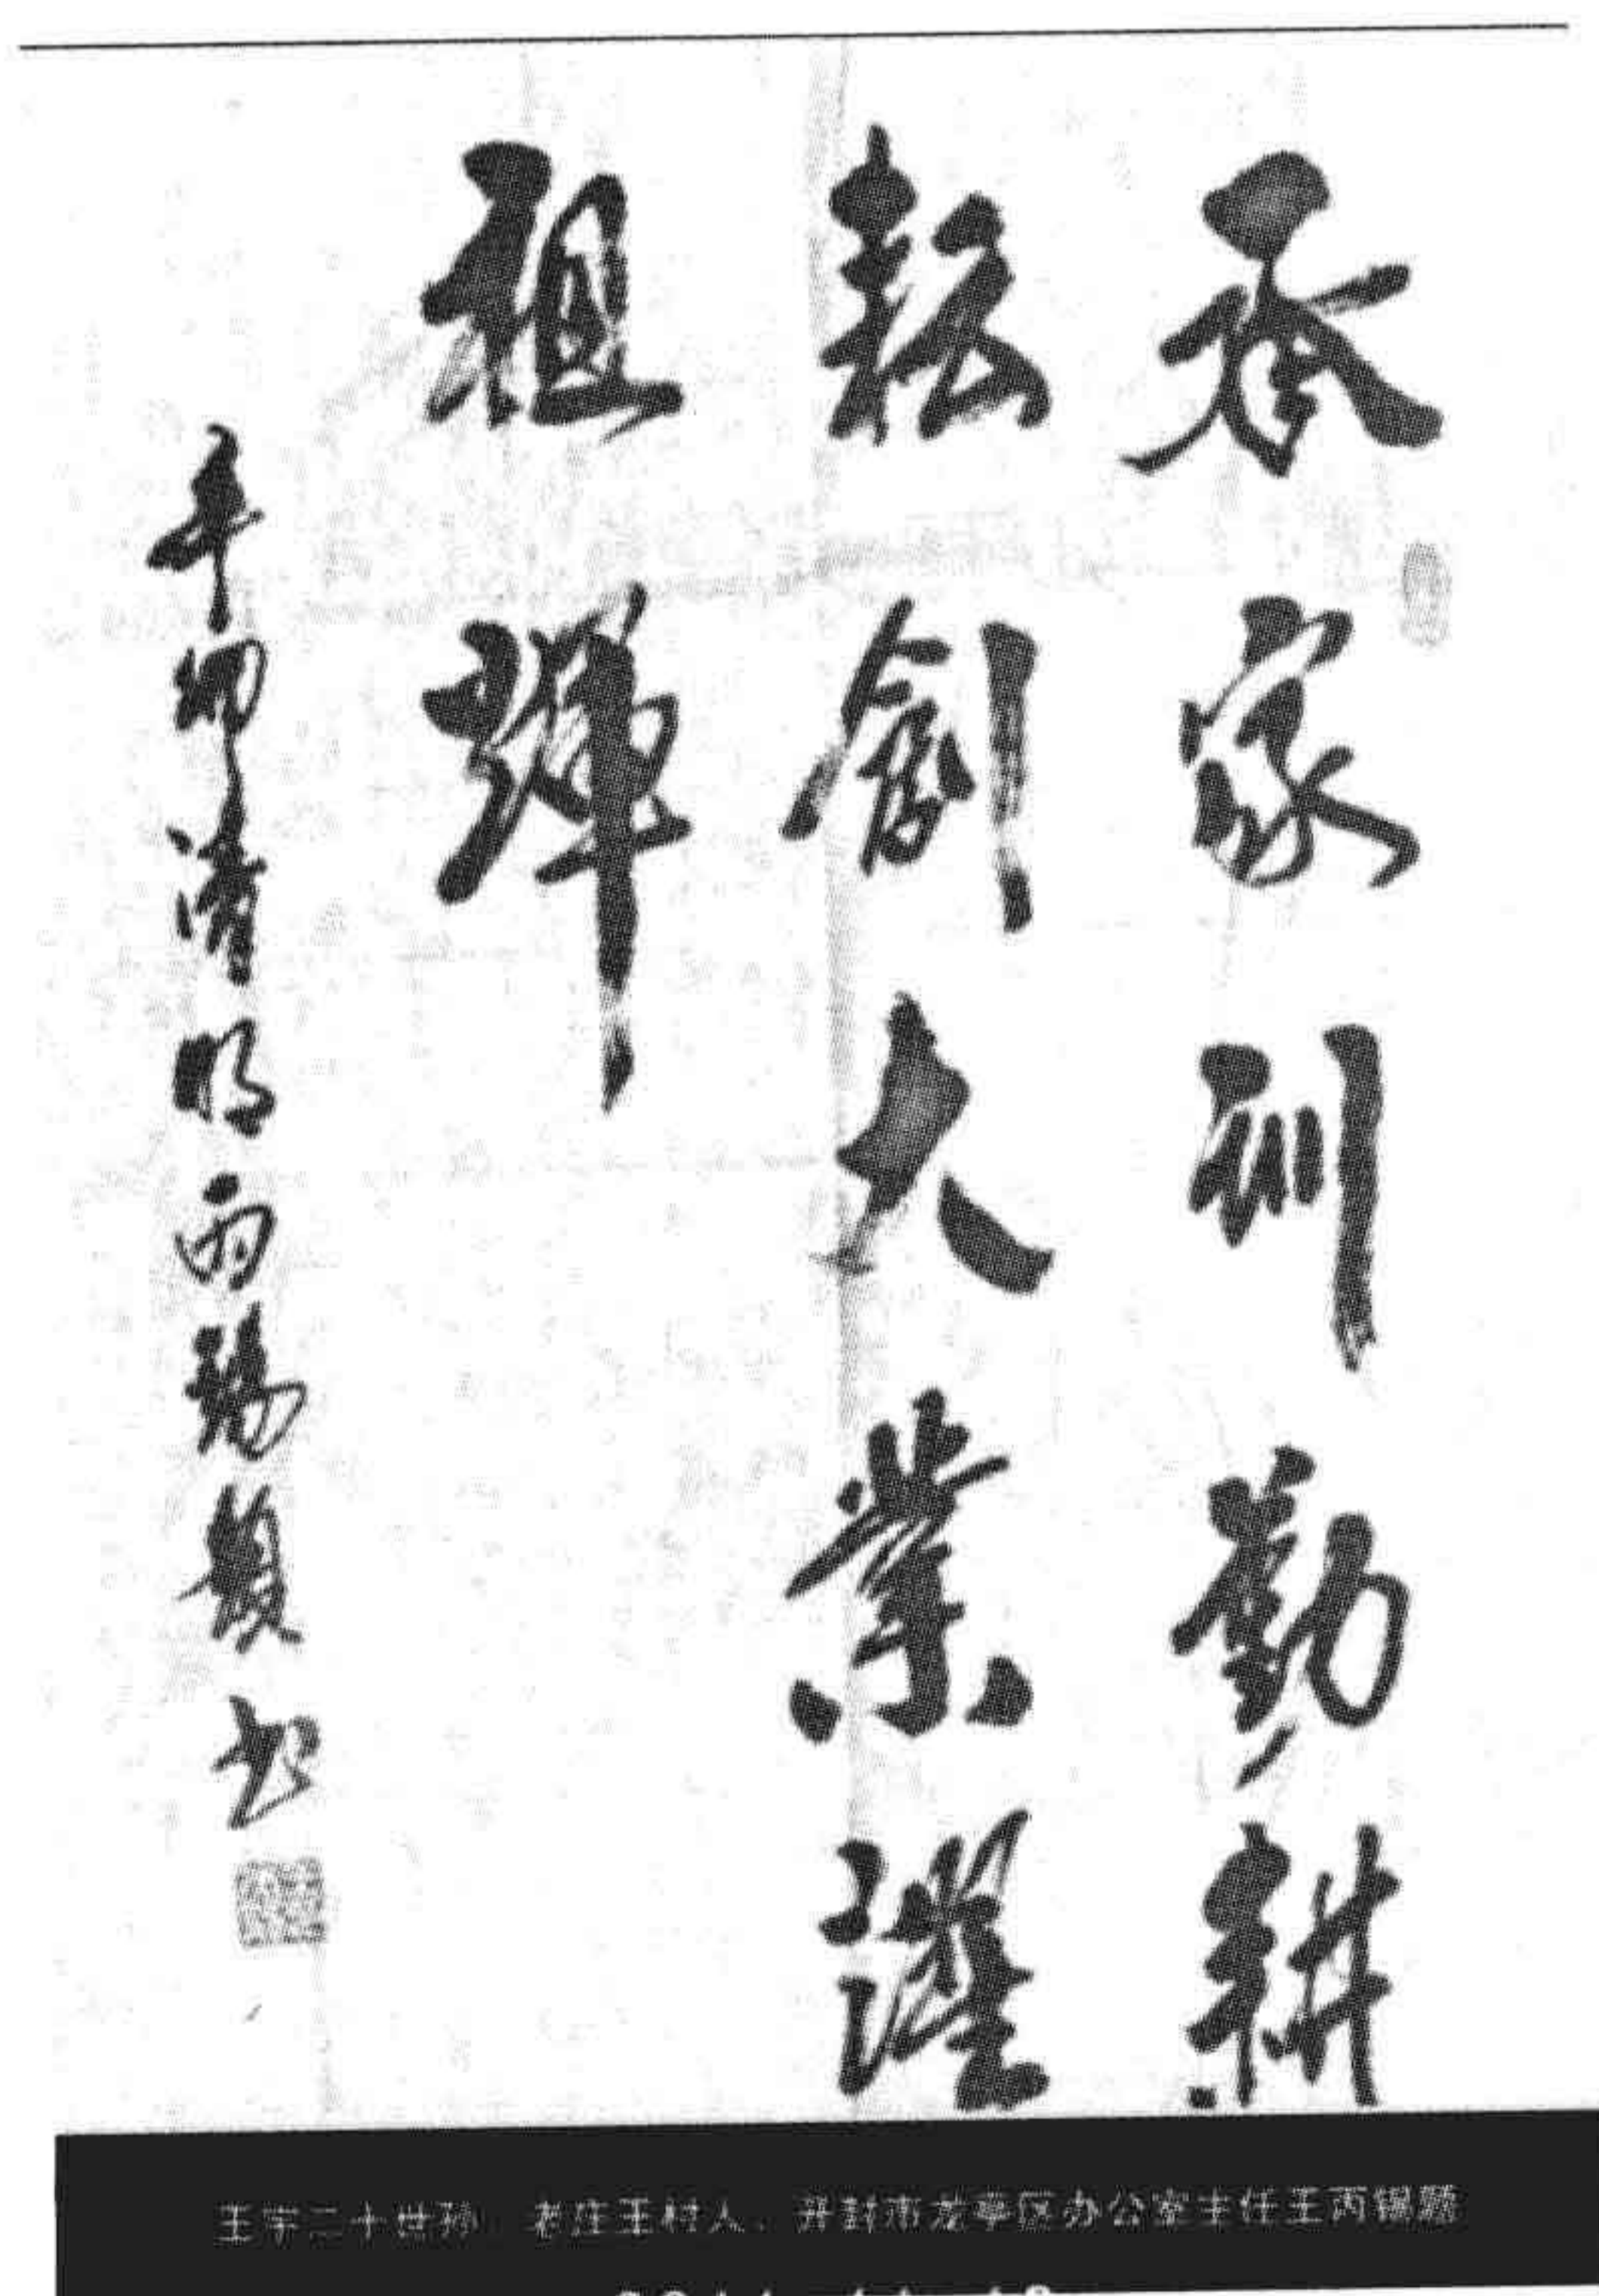 承家訓勤耕
耘創大業耀
祖輝
辛卯清明丙錫書
王宇二十世孙 老庄王村人、开封市龙亭区办公室主任王丙锡题